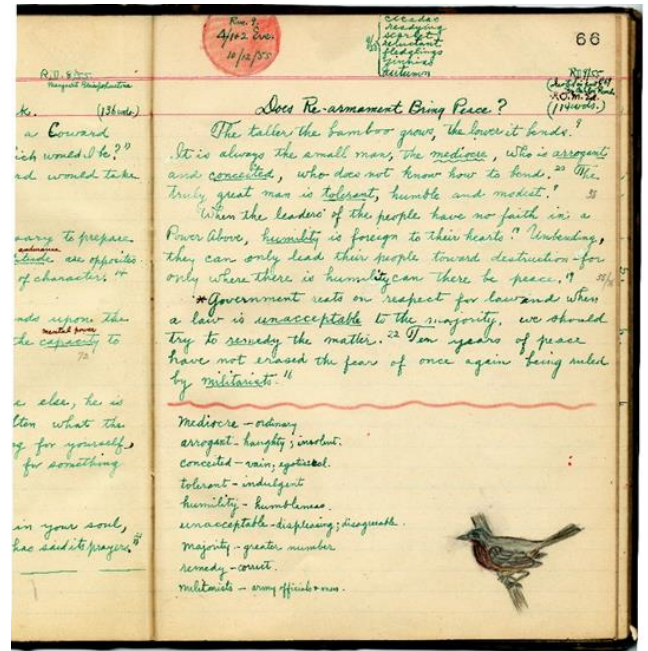 R.D. 9/55
k. (136 wds.)
a Coward
ich would I be?"
rd would take
sary to prepare
endurance
titude are opposites
of character. 14
nds upon the
mental power
the capacity to
72
e else, he is
ten what the
g for yourself,
for something
in your soul,
has said its prayers.
Rev. 9.
4/1+2 Eve.
10/12/55
cicadas
readying
scarlet
reluctant
fledglings
autumn
9/23
66
R.D. 9/55
(114 wds.)
Does Re-armament Bring Peace?
The taller the bamboo grows, the lower it bends. 9
It is always the small man, the mediocre, who is arrogant
and conceited, who does not know how to bend. 20 The
truly great man is tolerant, humble and modest. 9
38
When the leaders of the people have no faith in a
Power Above, humility is foreign to their hearts. 17 Unbending,
they can only lead their people toward destruction-for
only where there is humility can there be peace. 19
*Government rests on respect for law and when
a law is unacceptable to the majority, we should
try to remedy the matter. 22 Ten years of peace
have not erased the fear of once again being ruled
by militarists. 16
Mediocre - ordinary
arrogant - haughty; insolent.
conceited - vain; egotistical.
tolerant - indulgent
humility - humbleness.
unacceptable - displeasing; disagreeable.
Majority - greater number
remedy - correct.
Militarists - army officials + men.